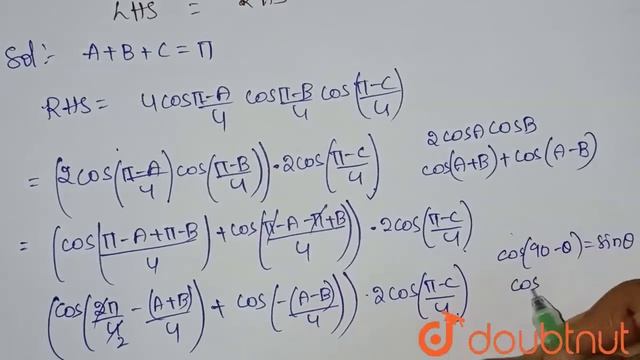 LHS =
Sol:- A+B+C=π
RHS= 4cos π-A/4 cos π-B/4 cos(π-C/4)
= (2cos(π-A/4) cos(π-B/4)) · 2cos(π-C/4)
2cosAcosB
cos(A+B)+cos(A-B)
= (cos(π-A+π-B/4) + cos(π-A-π+B/4)) · 2cos(π-C/4)
cos(90-θ)=sinθ
cos
(cos(2π/4 2 -(A+B)/4) + cos(-(A-B)/4)) · 2cos(π-C/4)
doubtnut